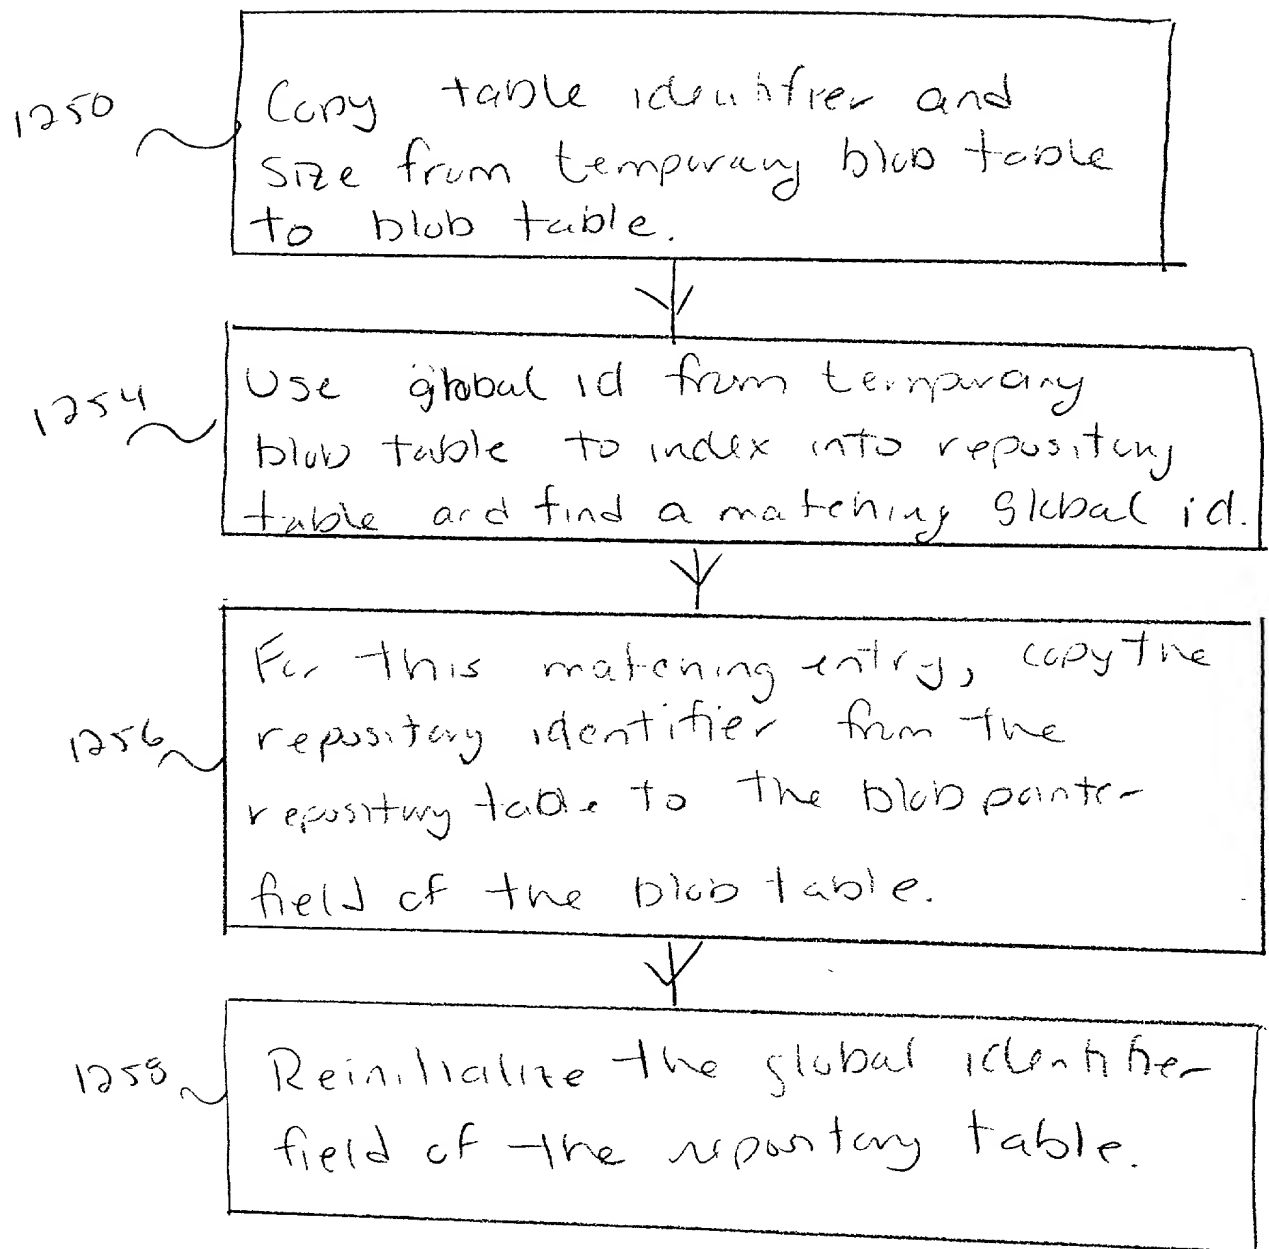 1250
Copy table identifier and
size from temporary blob table
to blob table.
1254
Use global id from temporary
blob table to index into repository
table and find a matching global id.
1256
For this matching entry, copy the
repository identifier from the
repository table to the blob pointer
field of the blob table.
1258
Reinitialize the global identifier
field of the repository table.